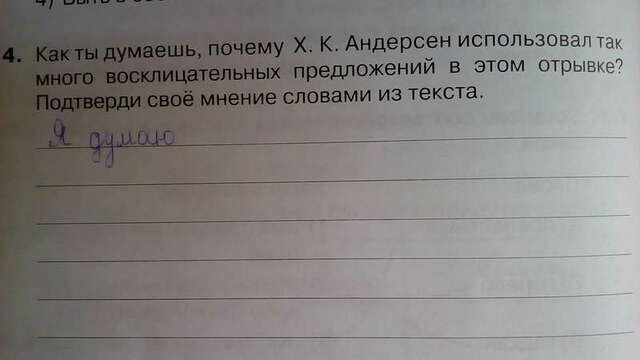 4. Как ты думаешь, почему Х. К. Андерсен использовал так
много восклицательных предложений в этом отрывке?
Подтверди своё мнение словами из текста.
Я думаю